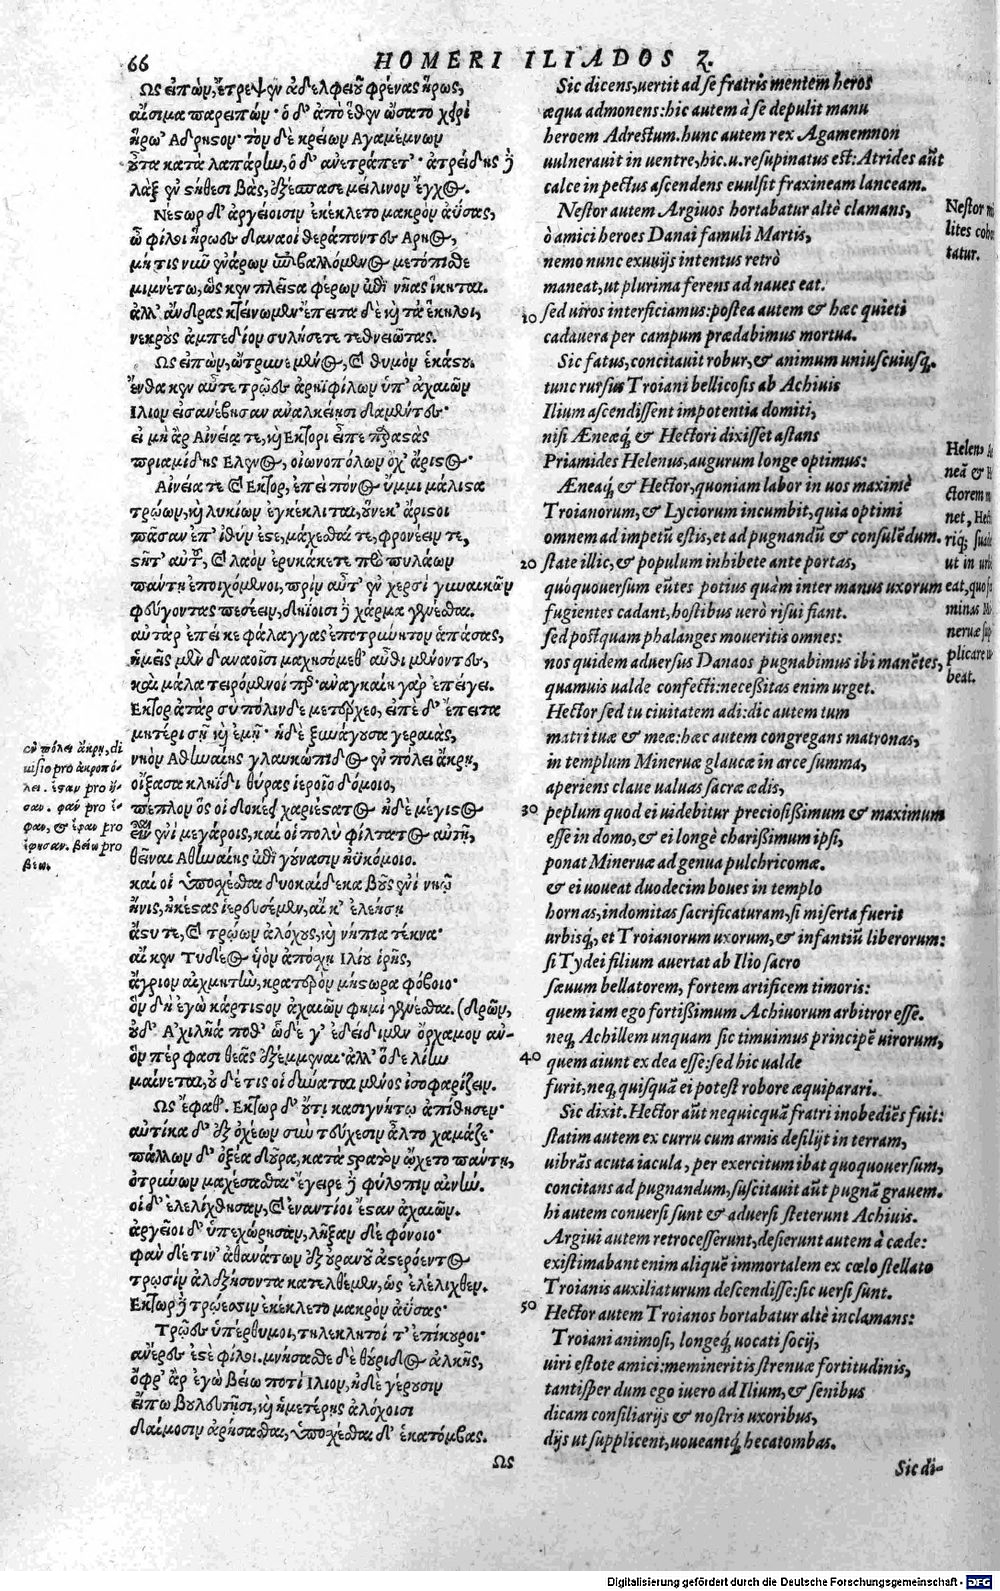 66
HOMERI ILIADOS Ζ.
Ως εἰπὼν, ἔτρεψεν ἀδελφειοῦ φρένας ἥρως,
αἴσιμα παρειπών· ὁ δ' ἀπὸ ἕθεν ὤσατο χειρὶ
ἥρω' Αδρηστον· τὸν δὲ κρείων Αγαμέμνων
οὖτα κατὰ λαπάρην, ὁ δ' ἀνετράπετ'· ἀτρείδης δὲ
λὰξ ἐν στήθεσι βὰς, ἐξέσπασε μείλινον ἔγχος.
Νέστωρ δ' ἀργείοισιν ἐκέκλετο μακρὸν ἀΰσας,
ὦ φίλοι ἥρωες δαναοὶ θεράποντες Αρηος,
μή τις νῦν ἐνάρων ἐπιβαλλόμενος μετόπισθε
μιμνέτω, ὥς κεν πλεῖστα φέρων ἐπὶ νῆας ἵκηται.
ἀλλ' ἄνδρας κτείνωμεν· ἔπειτα δὲ καὶ τὰ ἕκηλοι,
νεκροὺς ἀμπεδίον συλήσετε τεθνειῶτας.
Ως εἰπὼν, ὤτρυνε μένος, καὶ θυμὸν ἑκάστου.
ἔνθα κεν αὖτε τρῶες ἀρηϊφίλων ὑπ' ἀχαιῶν
Ιλιον εἰσανέβησαν ἀναλκείησι δαμέντες·
εἰ μὴ ἂρ Αἰνείᾳ τε, καὶ Εκτορι εἶπε παραστὰς
πριαμίδης Ελενος, οἰωνοπόλων ὄχ' ἄριστος·
Αἰνεία τε καὶ Εκτορ, ἐπεὶ πόνος ὔμμι μάλιστα
τρώων, καὶ λυκίων ἐγκέκλιται, οὕνεκ' ἄριστοι
πᾶσαν ἐπ' ἰθύν ἐστε, μάχεσθαί τε, φρονέειν τε,
στῆτ' αὐτοῦ, καὶ λαὸν ἐρυκάκετε πρὸ πυλάων
πάντη ἐποιχόμενοι, πρὶν αὖτ' ἐν χερσὶ γυναικῶν
φεύγοντας πεσέειν, δηΐοισι δὲ χάρμα γενέσθαι.
αὐτὰρ ἐπεί κε φάλαγγας ἐποτρύνητον ἁπάσας,
ἡμεῖς μὲν δαναοῖσι μαχησόμεθ' αὖθι μένοντες,
καὶ μάλα τειρόμενοί περ· ἀναγκαίη γὰρ ἐπείγει.
Εκτορ ἀτὰρ σὺ πόλινδε μετέρχεο, εἰπὲ δ' ἔπειτα
μητέρι σῇ καὶ ἐμῇ· ἡ δὲ ξυνάγουσα γεραιὰς,
νηὸν Αθηναίης γλαυκώπιδος ἐν πόλει ἄκρῃ,
οἴξασα κληῖδι θύρας ἱεροῖο δόμοιο,
πέπλον ὅς οἱ δοκέει χαριέστατος ἠδὲ μέγιστος
εἶναι ἐνὶ μεγάροις, καί οἱ πολὺ φίλτατος αὐτῇ,
θεῖναι Αθηναίης ἐπὶ γούνασιν ἠϋκόμοιο.
καί οἱ ὑποσχέσθαι δυοκαίδεκα βοῦς ἐνὶ νηῷ
ἤνις, ἠκέστας ἱερευσέμεν, αἴ κ' ἐλεήσῃ
ἄστυ τε, καὶ τρώων ἀλόχους, καὶ νήπια τέκνα·
αἴ κεν Τυδέος υἱὸν ἀπόσχῃ Ιλίου ἱρῆς,
ἄγριον αἰχμητὴν, κρατερὸν μήστωρα φόβοιο·
ὃν δὴ ἐγὼ κάρτιστον ἀχαιῶν φημὶ γενέσθαι. (δρῶν,
οὐδ' Αχιλῆά ποθ' ὧδέ γ' ἐδείδιμεν ὄρχαμον ἀν-
ὅν πέρ φασι θεᾶς ἐξέμμεναι· ἀλλ' ὅδε λίην
μαίνεται, οὐδέ τις οἱ δύναται μένος ἰσοφαρίζειν.
Ως ἔφαθ'. Εκτωρ δ' οὔτι κασιγνήτῳ ἀπίθησεν·
αὐτίκα δ' ἐξ ὀχέων σὺν τεύχεσιν ἆλτο χαμᾶζε·
πάλλων δ' ὀξέα δοῦρα, κατὰ στρατὸν ᾤχετο πάντῃ,
ὀτρύνων μαχέσασθαι· ἔγειρε δὲ φύλοπιν αἰνήν.
οἱ δ' ἐλελίχθησαν, καὶ ἐναντίοι ἔσταν ἀχαιῶν.
ἀργεῖοι δ' ὑπεχώρησαν, λῆξαν δὲ φόνοιο·
φὰν δέ τιν' ἀθανάτων ἐξ οὐρανοῦ ἀστερόεντος
τρωσὶν ἀλεξήσοντα κατελθέμεν, ὡς ἐλέλιχθεν.
Εκτωρ δὲ τρώεσσιν ἐκέκλετο μακρὸν ἀΰσας·
Τρῶες ὑπέρθυμοι, τηλεκλητοί τ' ἐπίκουροι·
ἀνέρες ἔστε φίλοι. μνήσασθε δὲ θούριδος ἀλκῆς,
ὄφρ' ἂρ ἐγὼ βείω ποτὶ Ιλιον, ἠδὲ γέρουσιν
εἴπω βουλευτῇσι, καὶ ἡμετέρῃς ἀλόχοισι
δαίμοσιν ἀρήσασθαι, ὑποσχέσθαι δ' ἑκατόμβας.
Ως
ἐν πόλει ἄκρῃ, di
uisio pro ἀκροπό-
λει. ἔσαν pro ἤ-
σαν. φαν pro ἔ-
φαν, & ἔφαν pro
ἔφησαν. βείω pro
βέω.
Sic dicens, uertit ad se fratris mentem heros
æqua admonens: hic autem à se depulit manu
heroem Adrestum. hunc autem rex Agamemnon
uulnerauit in uentre, hic.u. resupinatus est: Atrides aūt
calce in pectus ascendens euulsit fraxineam lanceam.
Nestor autem Argiuos hortabatur altè clamans,
ò amici heroes Danai famuli Martis,
nemo nunc exuuijs intentus retrò
maneat, ut plurima ferens ad naues eat.
10 sed uiros interficiamus: postea autem & hæc quieti
cadauera per campum prædabimus mortua.
Sic fatus, concitauit robur, & animum uniuscuiusq́.
tunc rursus Troiani bellicosis ab Achiuis
Ilium ascendissent impotentia domiti,
nisi Æneæq́, & Hectori dixisset astans
Priamides Helenus, augurum longe optimus:
Æneaq́, & Hector, quoniam labor in uos maximè
Troianorum, & Lyciorum incumbit, quia optimi
omnem ad impetū estis, et ad pugnandū & consulēdum.
20 state illic, & populum inhibete ante portas,
quòquouersum eūtes potius quàm inter manus uxorum
fugientes cadant, hostibus uerò risui fiant.
sed postquam phalanges moueritis omnes:
nos quidem aduersus Danaos pugnabimus ibi manētes,
quamuis ualde confecti: necessitas enim urget.
Hector sed tu ciuitatem adi: dic autem tum
matri tuæ & meæ: hæc autem congregans matronas,
in templum Mineruæ glaucæ in arce summa,
aperiens claue ualuas sacræ ædis,
30 peplum quod ei uidebitur preciosissimum & maximum
esse in domo, & ei longè charissimum ipsi,
ponat Mineruæ ad genua pulchricomæ.
& ei uoueat duodecim boues in templo
hornas, indomitas sacrificaturam, si miserta fuerit
urbisq́, et Troianorum uxorum, & infantiū liberorum:
si Tydei filium auertat ab Ilio sacro
sæuum bellatorem, fortem artificem timoris:
quem iam ego fortissimum Achiuorum arbitror esse.
neq, Achillem unquam sic timuimus principē uirorum,
40 quem aiunt ex dea esse: sed hic ualde
furit, neq, quisquā ei potest robore æquiparari.
Sic dixit. Hector aūt nequicquā fratri inobediēs fuit:
statim autem ex curru cum armis desilijt in terram,
uibrās acuta iacula, per exercitum ibat quoquouersum,
concitans ad pugnandum, suscitauit aūt pugnā grauem.
hi autem conuersi sunt & aduersi steterunt Achiuis.
Argiui autem retrocesserunt, desierunt autem à cæde:
existimabant enim aliquē immortalem ex cœlo stellato
Troianis auxiliaturum descendisse: sic uersi sunt.
50 Hector autem Troianos hortabatur altè inclamans:
Troiani animosi, longeq́, uocati socij,
uiri estote amici: memineritis strenuæ fortitudinis,
tantisper dum ego iuero ad Ilium, & senibus
dicam consiliarijs & nostris uxoribus,
dijs ut supplicent, uoueantq́, hecatombas.
Sic di-
Nestor
lites
tatur.
Helen
neā &
ctorem
net, Hect
riq́,
ut in
eat,
minas
neruæ
plicare
beat.
Digitalisierung gefördert durch die Deutsche Forschungsgemeinschaft - DFG